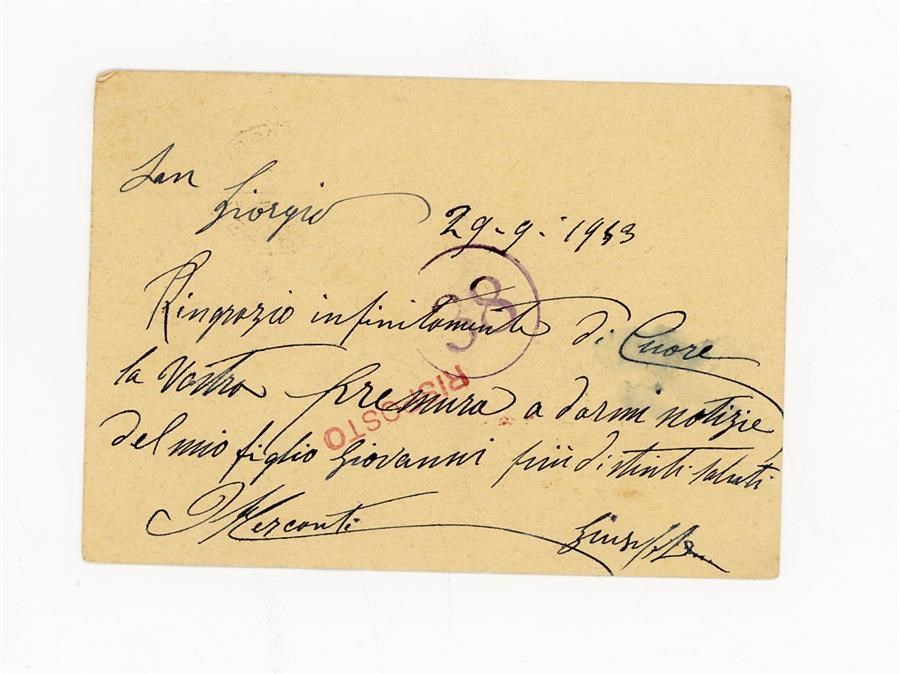 San
Giorgio 29-9-1943
38
Ringrazio infinitamente di Cuore
la Vostra premura a darmi notizie
RISPOSTO
del mio figlio Giovanni più distinti saluti
Giuseppe